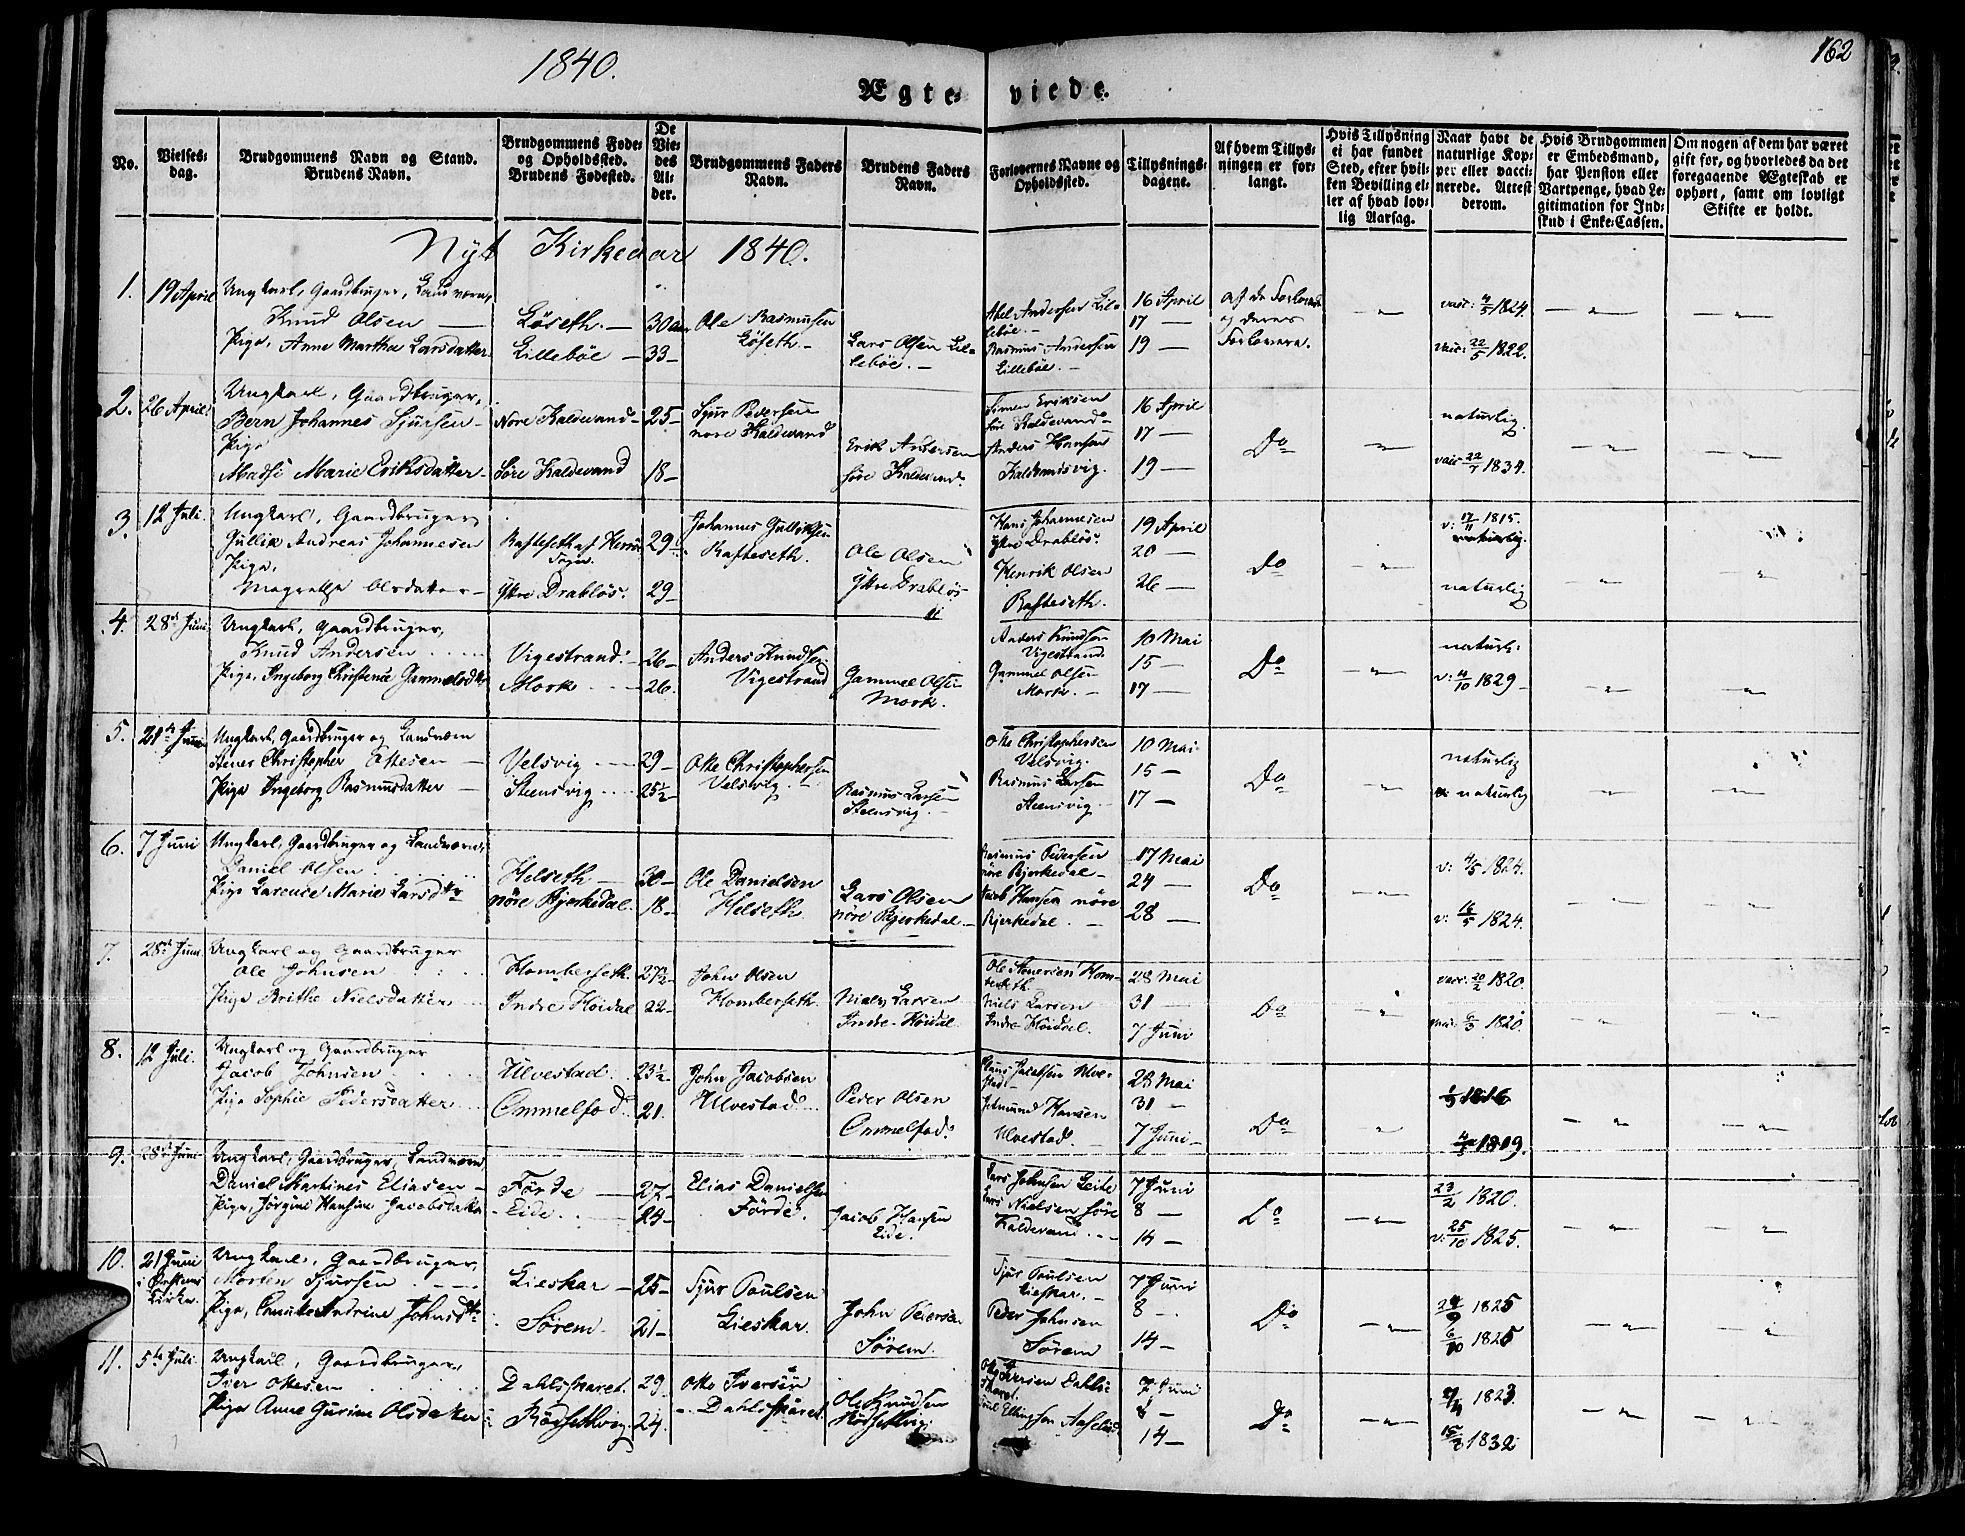 1840.
162
Ægte-
viede.
No.
Vielses-
dag.
Brudgommens Navn og Stand.
Brudens Navn.
Brudgommens Føde-
og Opholdssted.
Brudens Fødested.
De
Vie-
des
Al-
der.
Brudgommens Faders
Navn.
Brudens Faders
Navn.
Forlovernes Navne og
Opholdssted.
Tillysnings-
dagene.
Af hvem Tillys-
ningen er for-
langt.
Hvis Tillysning
ei har fundet
Sted, efter hvil-
ken Bevilling el-
ler af hvad lov-
lig Aarsag.
Naar havt de
naturlige Kop-
per eller vacci-
nerede. Attest
derom.
Hvis Brudgommen
er Embedsmand,
har Pension eller
Vartpenge, hvad Le-
gitimation for Ind-
skud i Enke-Cassen.
Om nogen af dem har været
gift før, og hvorledes da det
foregaaende Ægteskab er
ophørt, samt om lovligt
Skifte er holdt.
Nyt Kirkeaar 1840.
1. 19 April
Ungkarl, Gaardbruger, Landværn,
Knud Olsen
Pige, Anne Martha Larsdatter
Løseth.
Lillebøe
30 aar
33
Ole Rasmusen
Løseth.
Lars Olsen Lil-
lebøe.
Abel Andersen Lil-
lebøe.
Rasmus Andersen
Lillebøe.
16 April
17
19
af de Forlovede
og deres
Forlovere.
vacc: 4/5 1824.
vacc: 22/5 1822.
2. 26 April
Ungkarl, Gaardbruger,
Bern Johannes Sjursen
Pige
Madsi Marie Eriksdatter
Nore Kaldevand
Søre Kaldevand
25
18
Sjur Pedersen
nore Kaldevand
Erik Andersen
søre Kaldevand.
Simen Eriksen
søre Kaldevand
Anders Hansen
16 April
17
19
Do
naturlig.
vacc 22/7 1834.
3. 12 Juli.
Ungkarl, Gaardbruger
Gullik Andreas Johannesen
Pige,
Magrethe Olsdatter
Rafteseth af Herrø
Sogn.
Yttre Drabløs.
29
29
Johannes Gulliksen
Rafteseth.
Ole Olsen
Yttre Drabløs
Hans Johannesen
Yttre Drabløs.
Henrik Olsen
Rafteseth.
19 April
20
26
Do
v: 17/11 1815.
naturlig.
naturlig
4. 28de Juni
Ungkarl, Gaardbruger,
Knud Andersen
Pige, Ingeborg Christence Gammelsdtr
Vigestrand.
Mork
26
26.
Anders Knudsen
Vigestrand
Gammel Olsen
Mork.
Anders Knudsen
Vigestrand.
Gammel Olsen
Mork.
10 Mai
15
17
Do
naturl:
v: 4/10 1829
5. 21de Juni
Ungkarl, Gaardbruger og Landværn
Stener Christopher Ottesen
Pige Ingeborg Rasmusdatter
Velsvig
Steensvig
29
25½
Otte Christophersen
Velsvig.
Rasmus Larsen
Steensvig.
Otte Christophersen
Velsvig.
Rasmus Larsen
Steensvig.
10 Mai
15
17
Do
naturlig
naturlig
6. 7 Juni
Ungkarl, Gaardbruger og Landværn,
Daniel Olsen
Pige Larence Marie Larsdtr
Helseth
nøre Bjerkedal
30
18
Ole Danielsen
Helseth
Lars Olsen
nøre Bjerkedal.
Rasmus Pedersen
nøre Bjerkedal
Jacob Hansen nøre
Bjerkedal.
17 Mai
24
28
Do
v: 4/5 1824.
v: 16/5 1824.
7. 28de Juni
Ungkarl og Gaardbruger
Ole Johnsen
Pige Brithe Nielsdatter
Homberseth.
Indre Høidal
27½
22
John Olsen
Homberseth
Niels Larsen
Indre Høidal.
Ole Stenersen Hom-
berseth.
Niels Larsen
Indre Høidal.
28 Mai
31
7 Juni
Do
vacc: 20/2 1820.
vac: 6/3 1820.
8. 12 Juli.
Ungkarl og Gaardbruger
Jacob Johnsen
Pige Sophie Pedersdatter
Ulvestad
Ommelfod
23½
21.
John Jacobsen
Ulvestad
Peder Olsen
Ommelfod.
Claus Jacobsen Ulve-
stad.
Gudmund Hansen
Ulvestad.
28 Mai
31
7 Juni
Do
1816
1819.
9. 28de Juni
Ungkarl, Gaardbruger, Landværn
Daniel Martines Eliasen
Pige, Jørgine Hansine Jacobsdatter
Førde
Eide
27
24
Elias Danielsen
Førde.
Jacob Hansen
Eide.
Lars Johnsen Leite
Lars Nielsen søre
Kaldevand
7 Juni
8
14
Do
23/2 1820.
v: 25/10 1825.
10. 21 Juni
i Ørstens
Kirke.
Ungkarl, Gaardbruger,
Morten Sjursen
Pige, Andrine Johnsdtr
Lieskar
Sørem.
25
21
Sjur Poulsen
Lieskar.
John Pedersen
Sørem.
Sjur Poulsen
Lieskar.
Peder Johnsen
Sørem
7 Juni
8
14
Do
24/9 1825
6/10 1825
11. 5te Juli.
Ungkarl, Gaardbruger,
Iver Ottesen
Pige Anne Gurine Olsdatter
Dahlskaret.
Rødsethvig
29.
24.
Otte Iversen
Dahlskaret.
Ole Knudsen
Rødsethvig
Otte Iversen Dahls-
skaret.
Poul Ellingsen
7 Juni
8
14
Do
1823.
15/8 1832